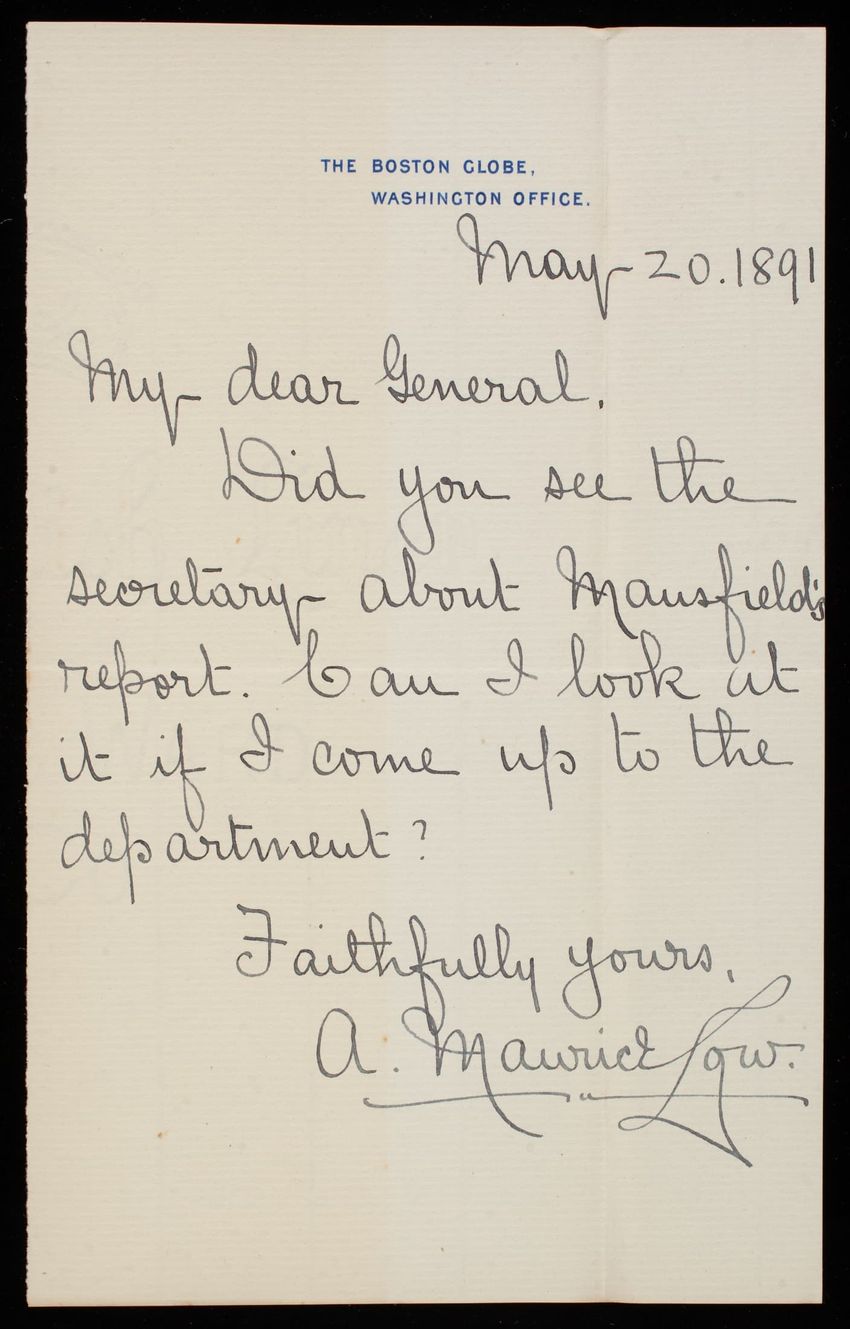 THE BOSTON GLOBE,
WASHINGTON OFFICE.
May 20. 1891
My dear General.
Did you see the
secretary about Mansfield's
report. Can I look at
it if I come up to the
department?
Faithfully yours,
A. Maurice Low.